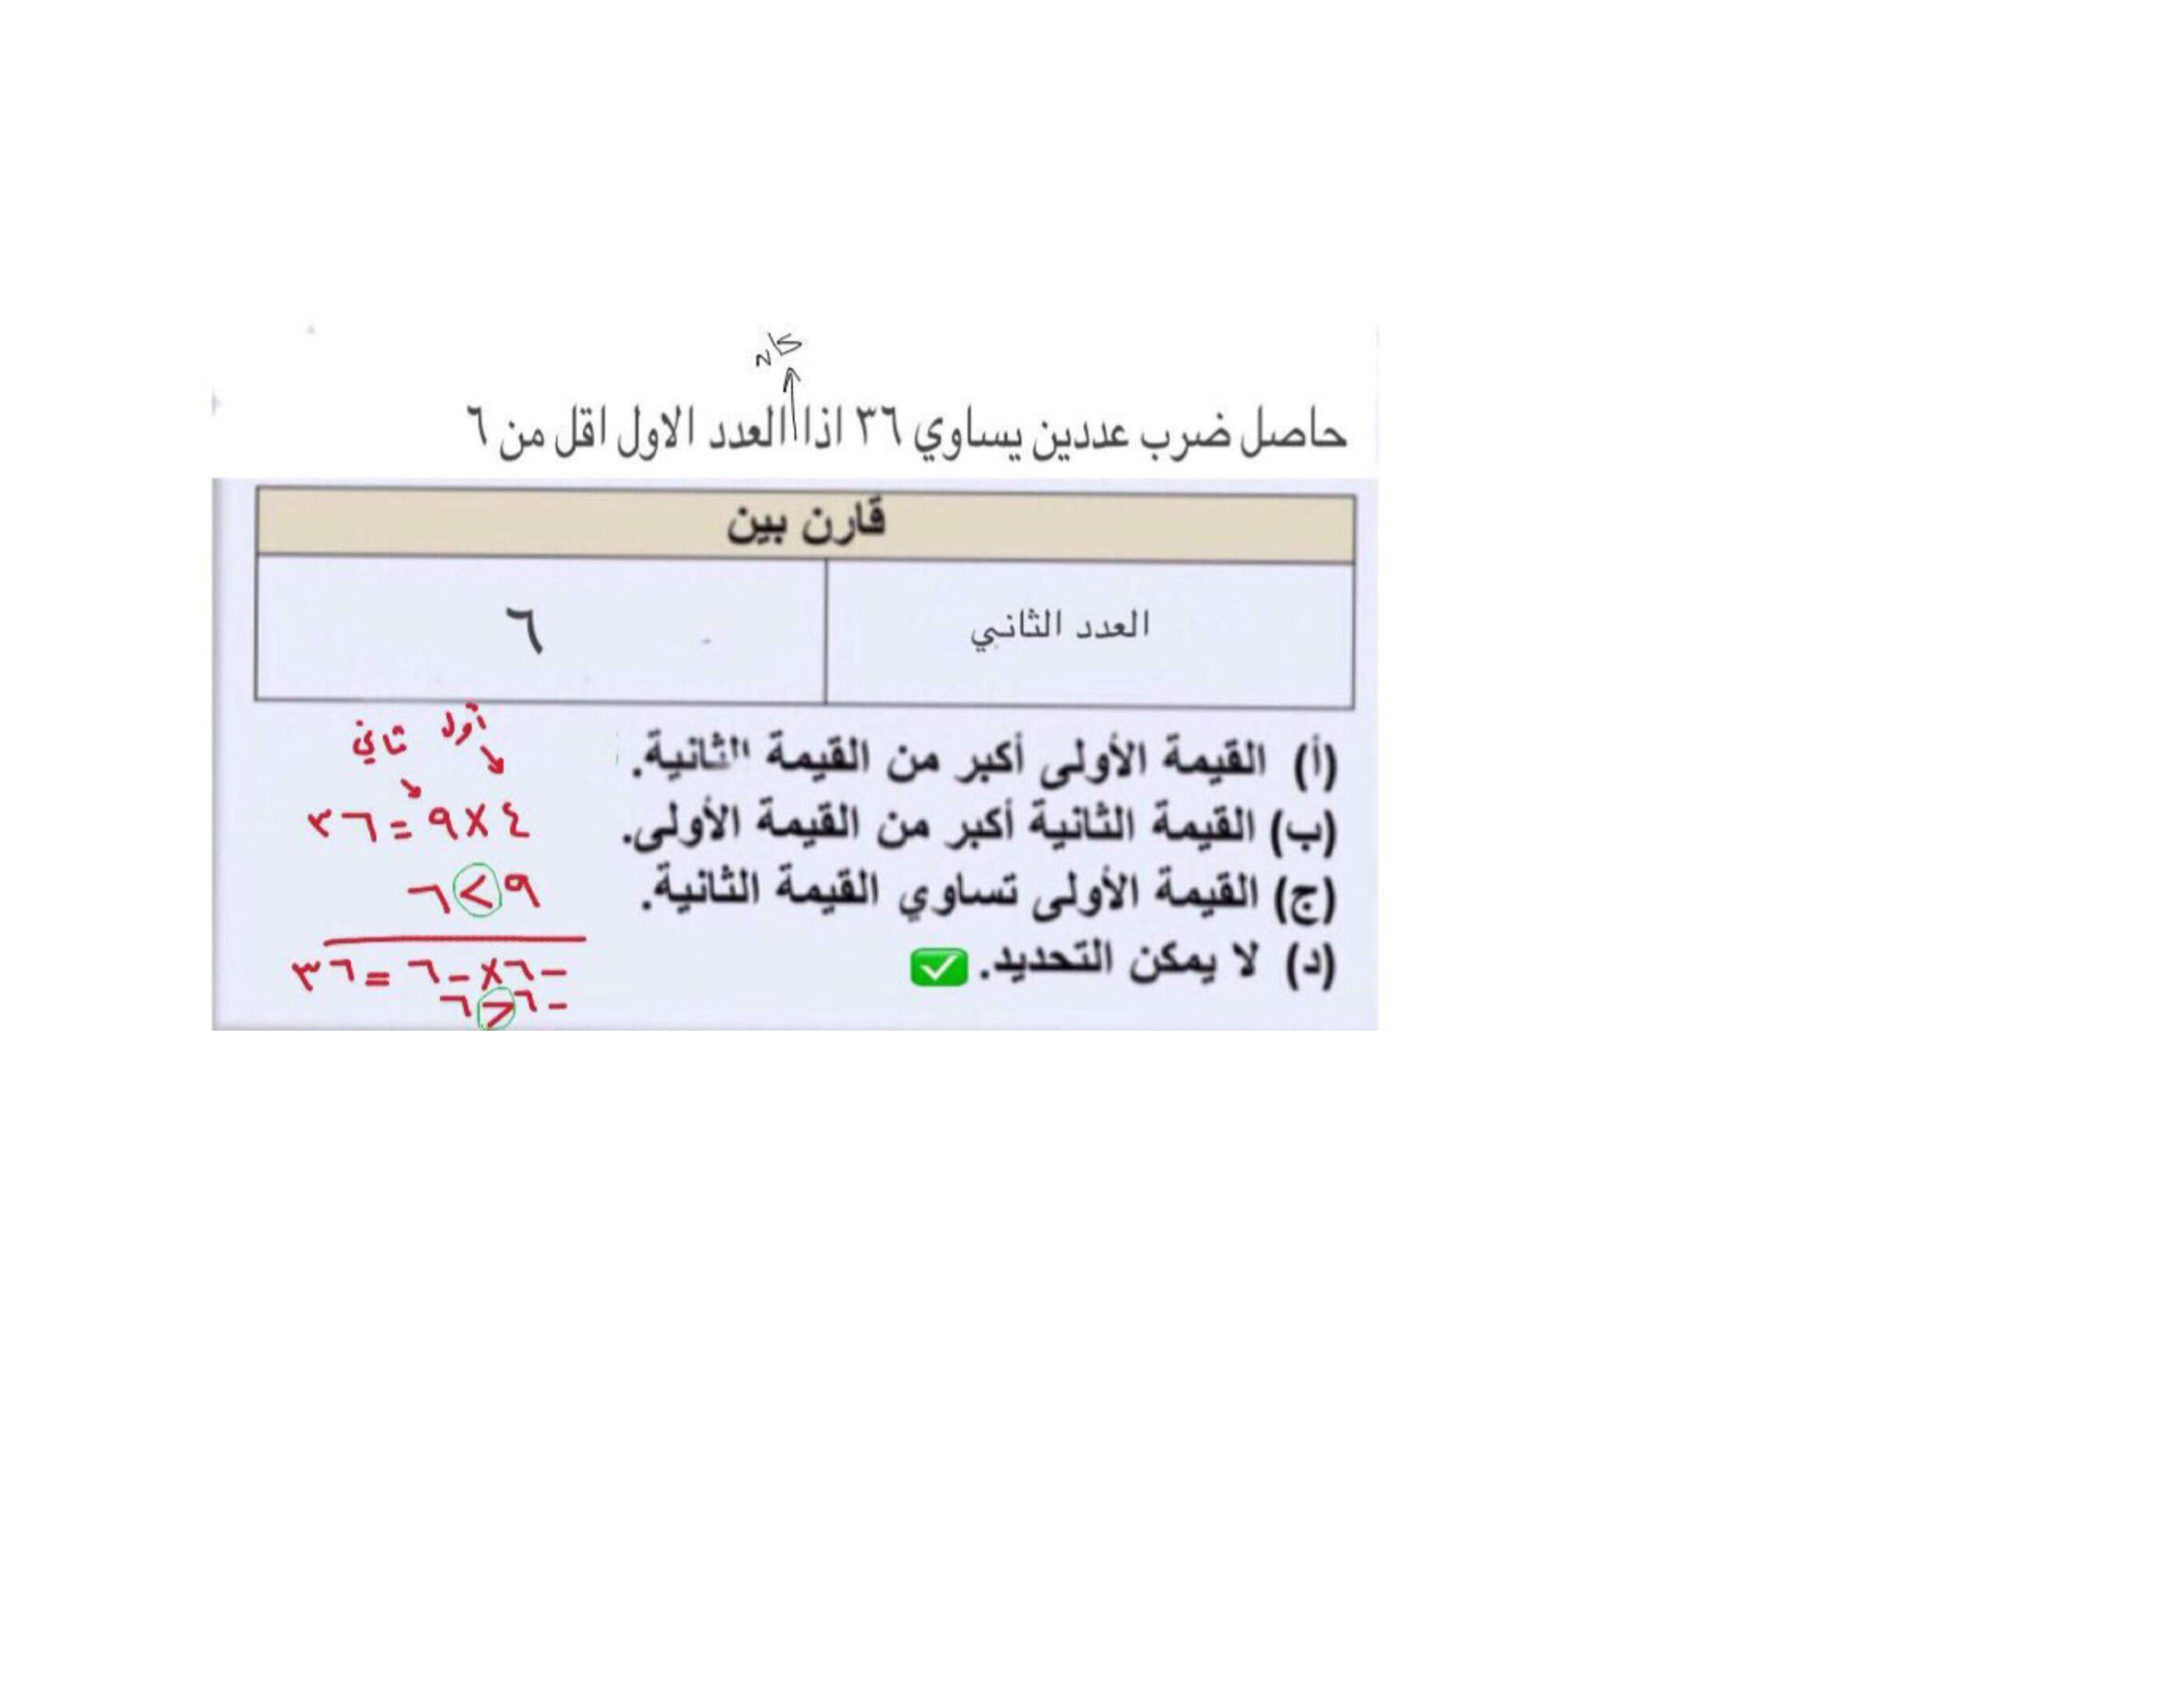 كان
حاصل ضرب عددين يساوي ٣٦ اذا العدد الاول اقل من ٦
قارن بين
العدد الثاني ٦
(أ) القيمة الأولى أكبر من القيمة الثانية.
(ب) القيمة الثانية أكبر من القيمة الأولى.
(ج) القيمة الأولى تساوي القيمة الثانية.
(د) لا يمكن التحديد. ✅
أول ثاني
٤ × ٩ = ٣٦
٩ > ٦
-٦ × -٦ = ٣٦
-٦ < ٦